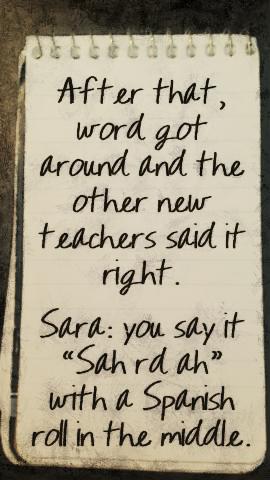 After that,
word got
around and the
other new
teachers said it
right.
Sara: you say it
“Sah rd ah”
with a Spanish
roll in the middle.